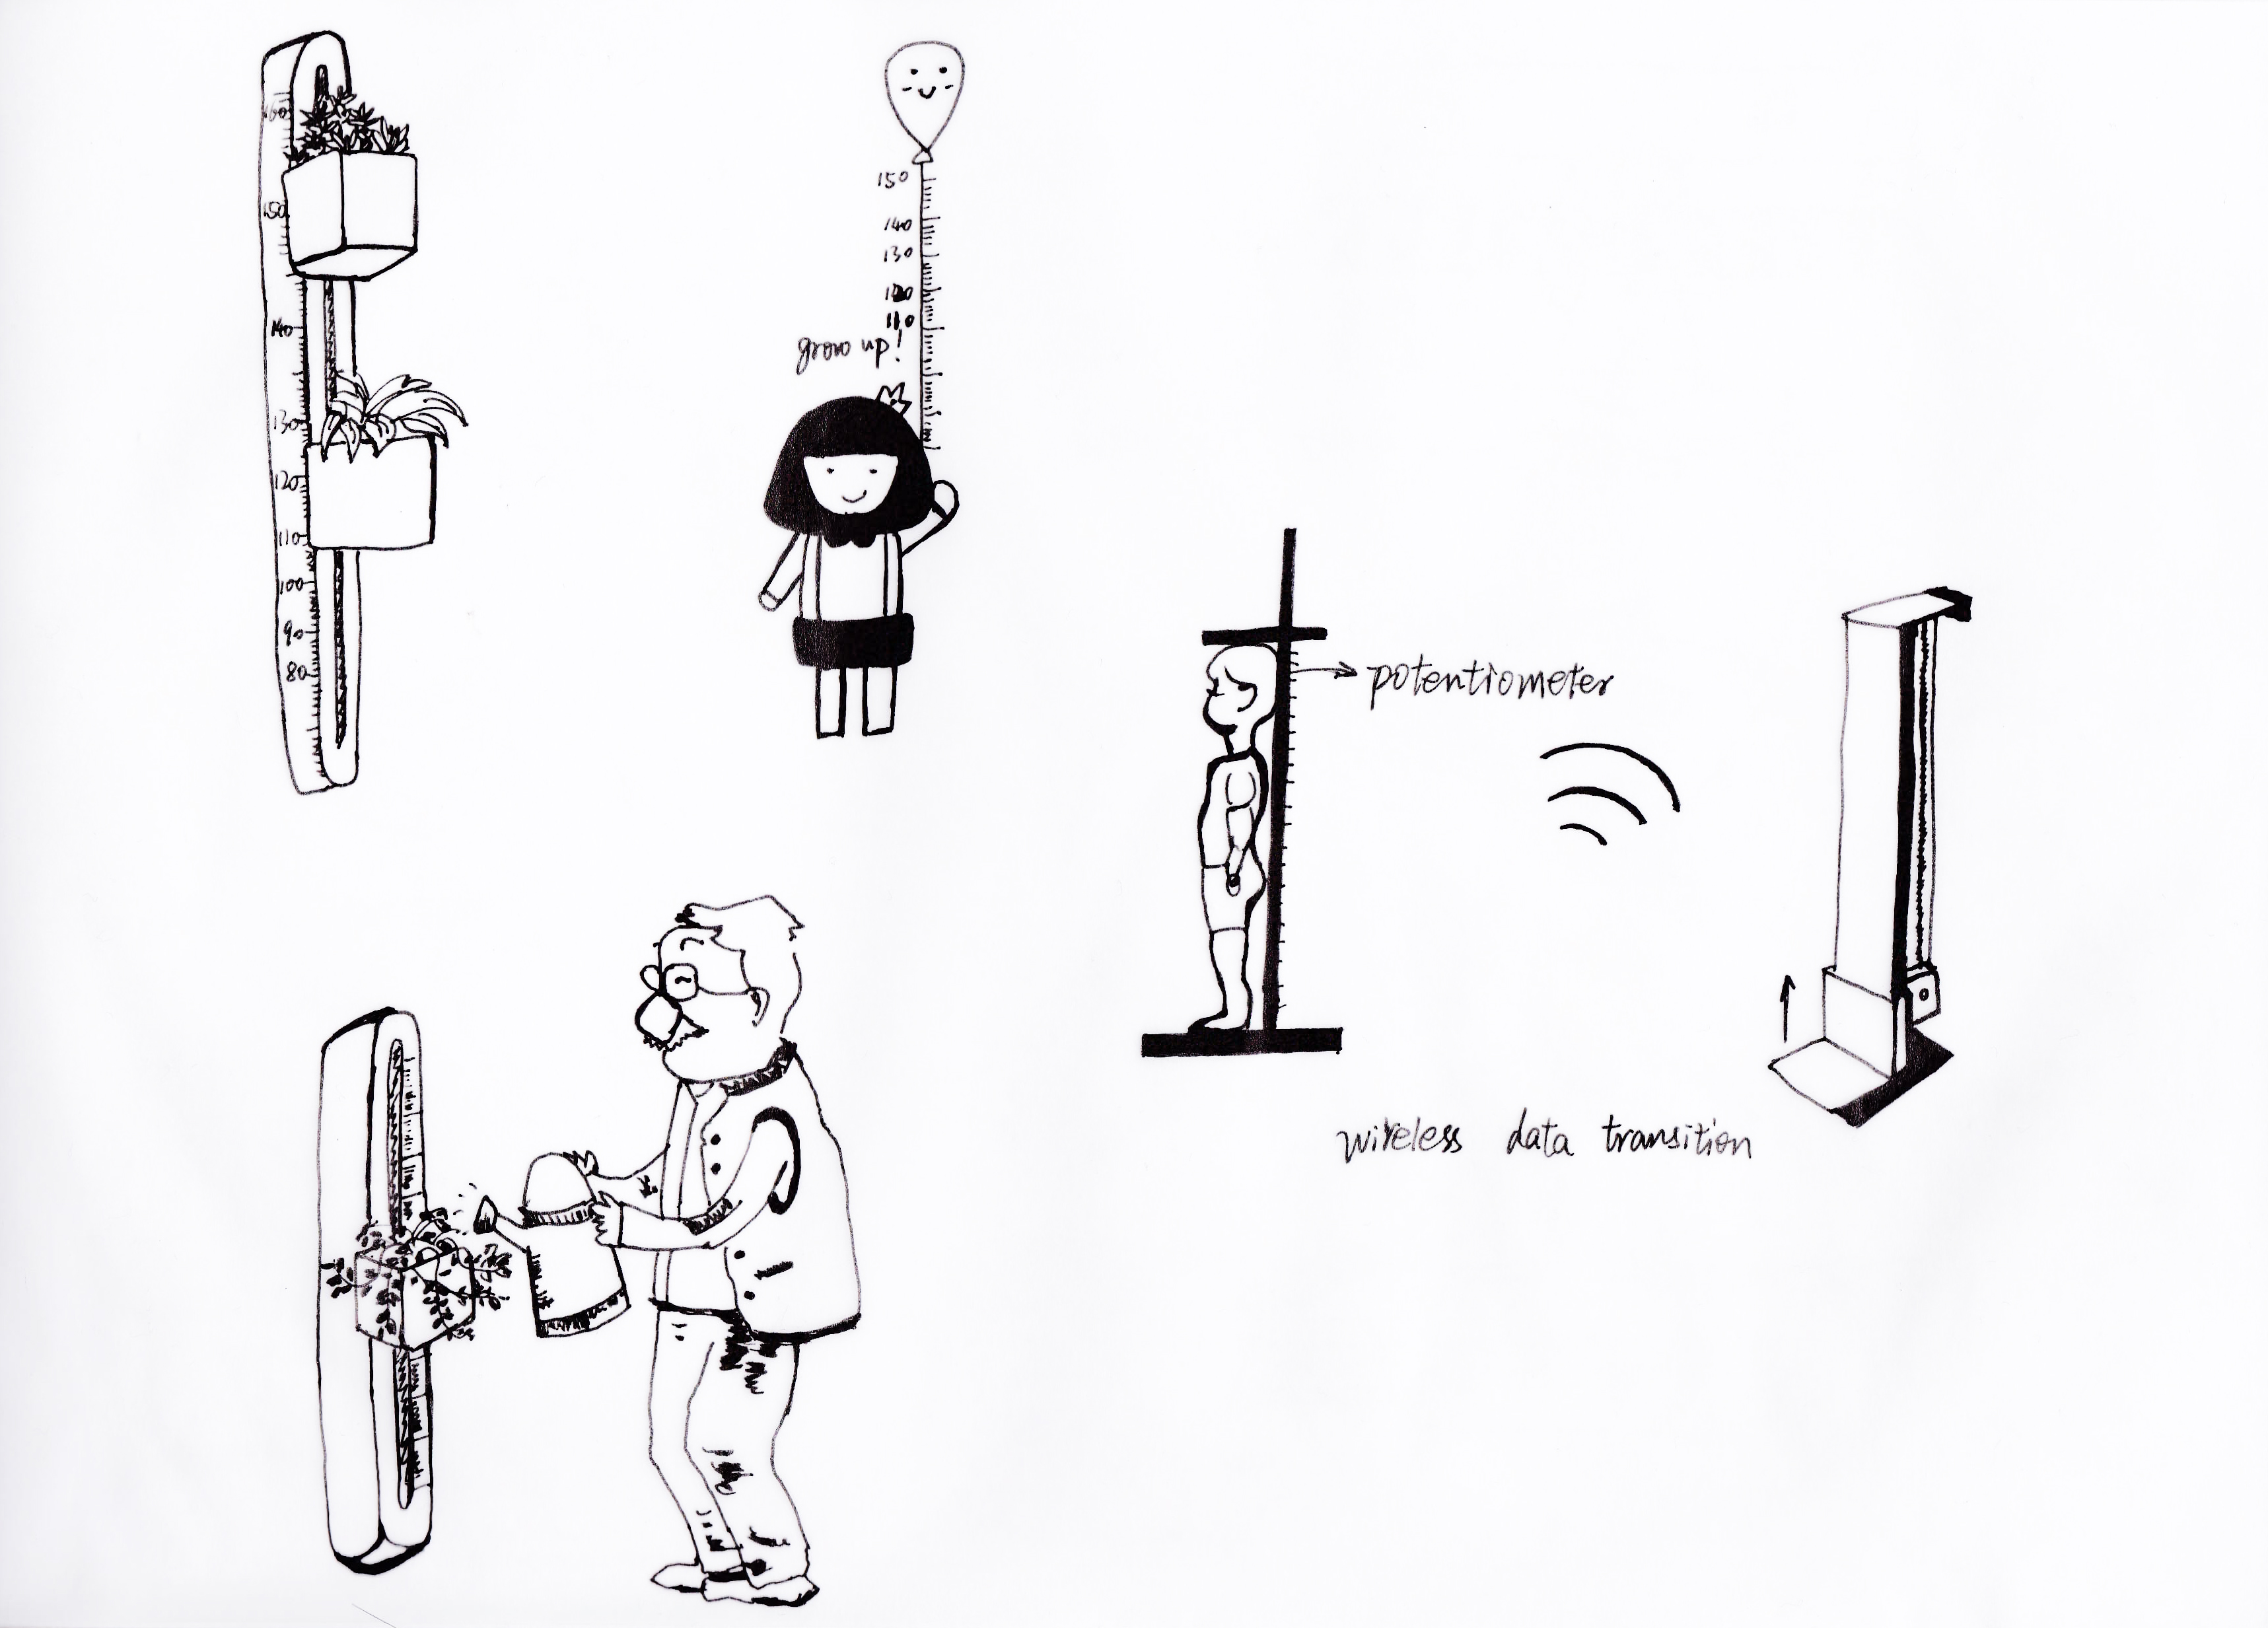 160
150
140
130
120
110
100
90
80
150
140
130
120
110
grow up!
potentiometer
wireless data transition